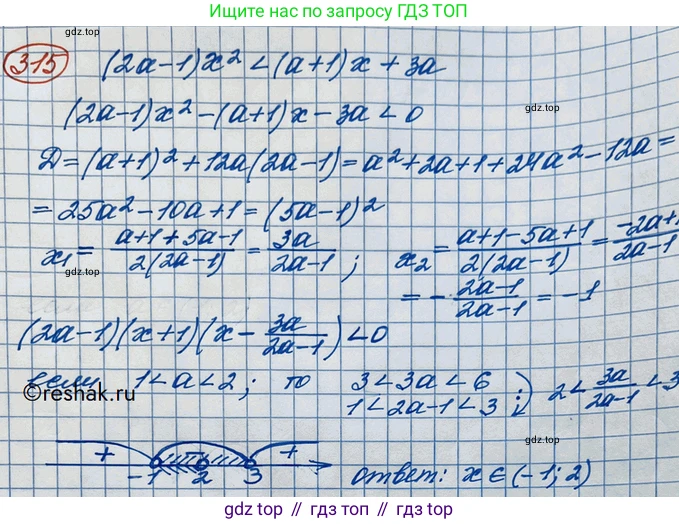 Ищите решения по запросу ГДЗ ТОП
315 (2a-1)x² < (a+1)x + 3a
(2a-1)x² - (a+1)x - 3a < 0
D = (a+1)² + 12a(2a-1) = a² + 2a + 1 + 24a² - 12a =
= 25a² - 10a + 1 = (5a-1)²
x₁ = (a+1+5a-1)/(2(2a-1)) = 3a/(2a-1); x₂ = (a+1-5a+1)/(2(2a-1)) = (-2a+1)/(2a-1)
= - (2a-1)/(2a-1) = -1
(2a-1)(x+1)(x - 3a/(2a-1)) < 0
если 1 < a < 2; то 3 < 3a < 6
1 < 2a-1 < 3 :) 2 < 3a/(2a-1) < 3
©reshak.ru
+ - +
-1 2 3
ответ: x ∈ (-1; 2)
gdz top
gdz top
gdz top
gdz top
gdz top
gdz top
gdz top
gdz.top // gdz.top // gdz.top // gdz.top